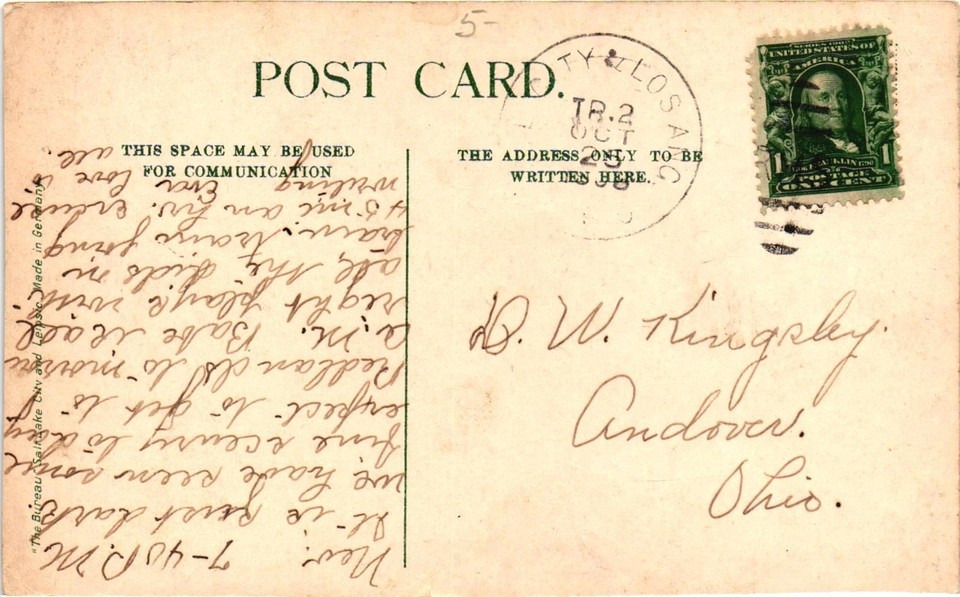 5-
POST CARD.
THIS SPACE MAY BE USED
FOR COMMUNICATION
THE ADDRESS ONLY TO BE
WRITTEN HERE.
TY & LOS ANG
TR.2
OCT
SERIES 1902
UNITED STATES OF
AMERICA
FRANKLIN
1 1
POSTAGE
ONE CENT
D. W. Kingsley.
Andover.
Ohio.
Nev. 7-40 P.M
It is just dark
we have seen some
fine scenery to day
expect to get to
Redlands to-morrow
a.m. Babe is all
right plays with
all the kids in
train. train going
45 mi an hr. excuse
writing Eva love to
all.
"The Bureau" Salt Lake City and Leipsic. Made in Germany